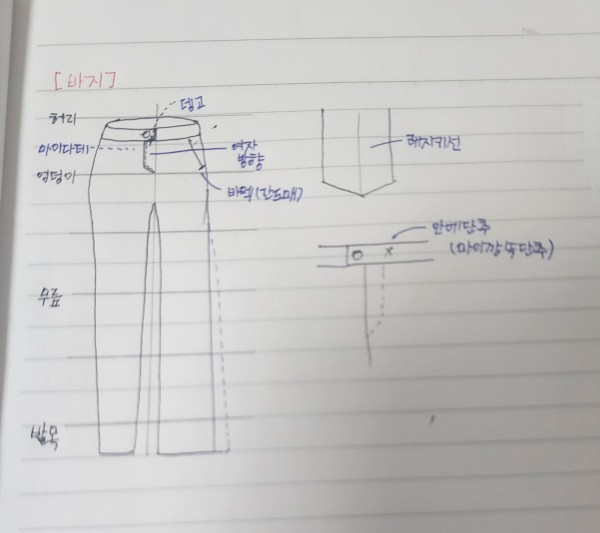 [바지]
허리
뎅고
마이다데
여자
방향
엉덩이
바텍 (칸도매)
무릎
발목
래지키선
안메단추
(마이깡 똑단추)